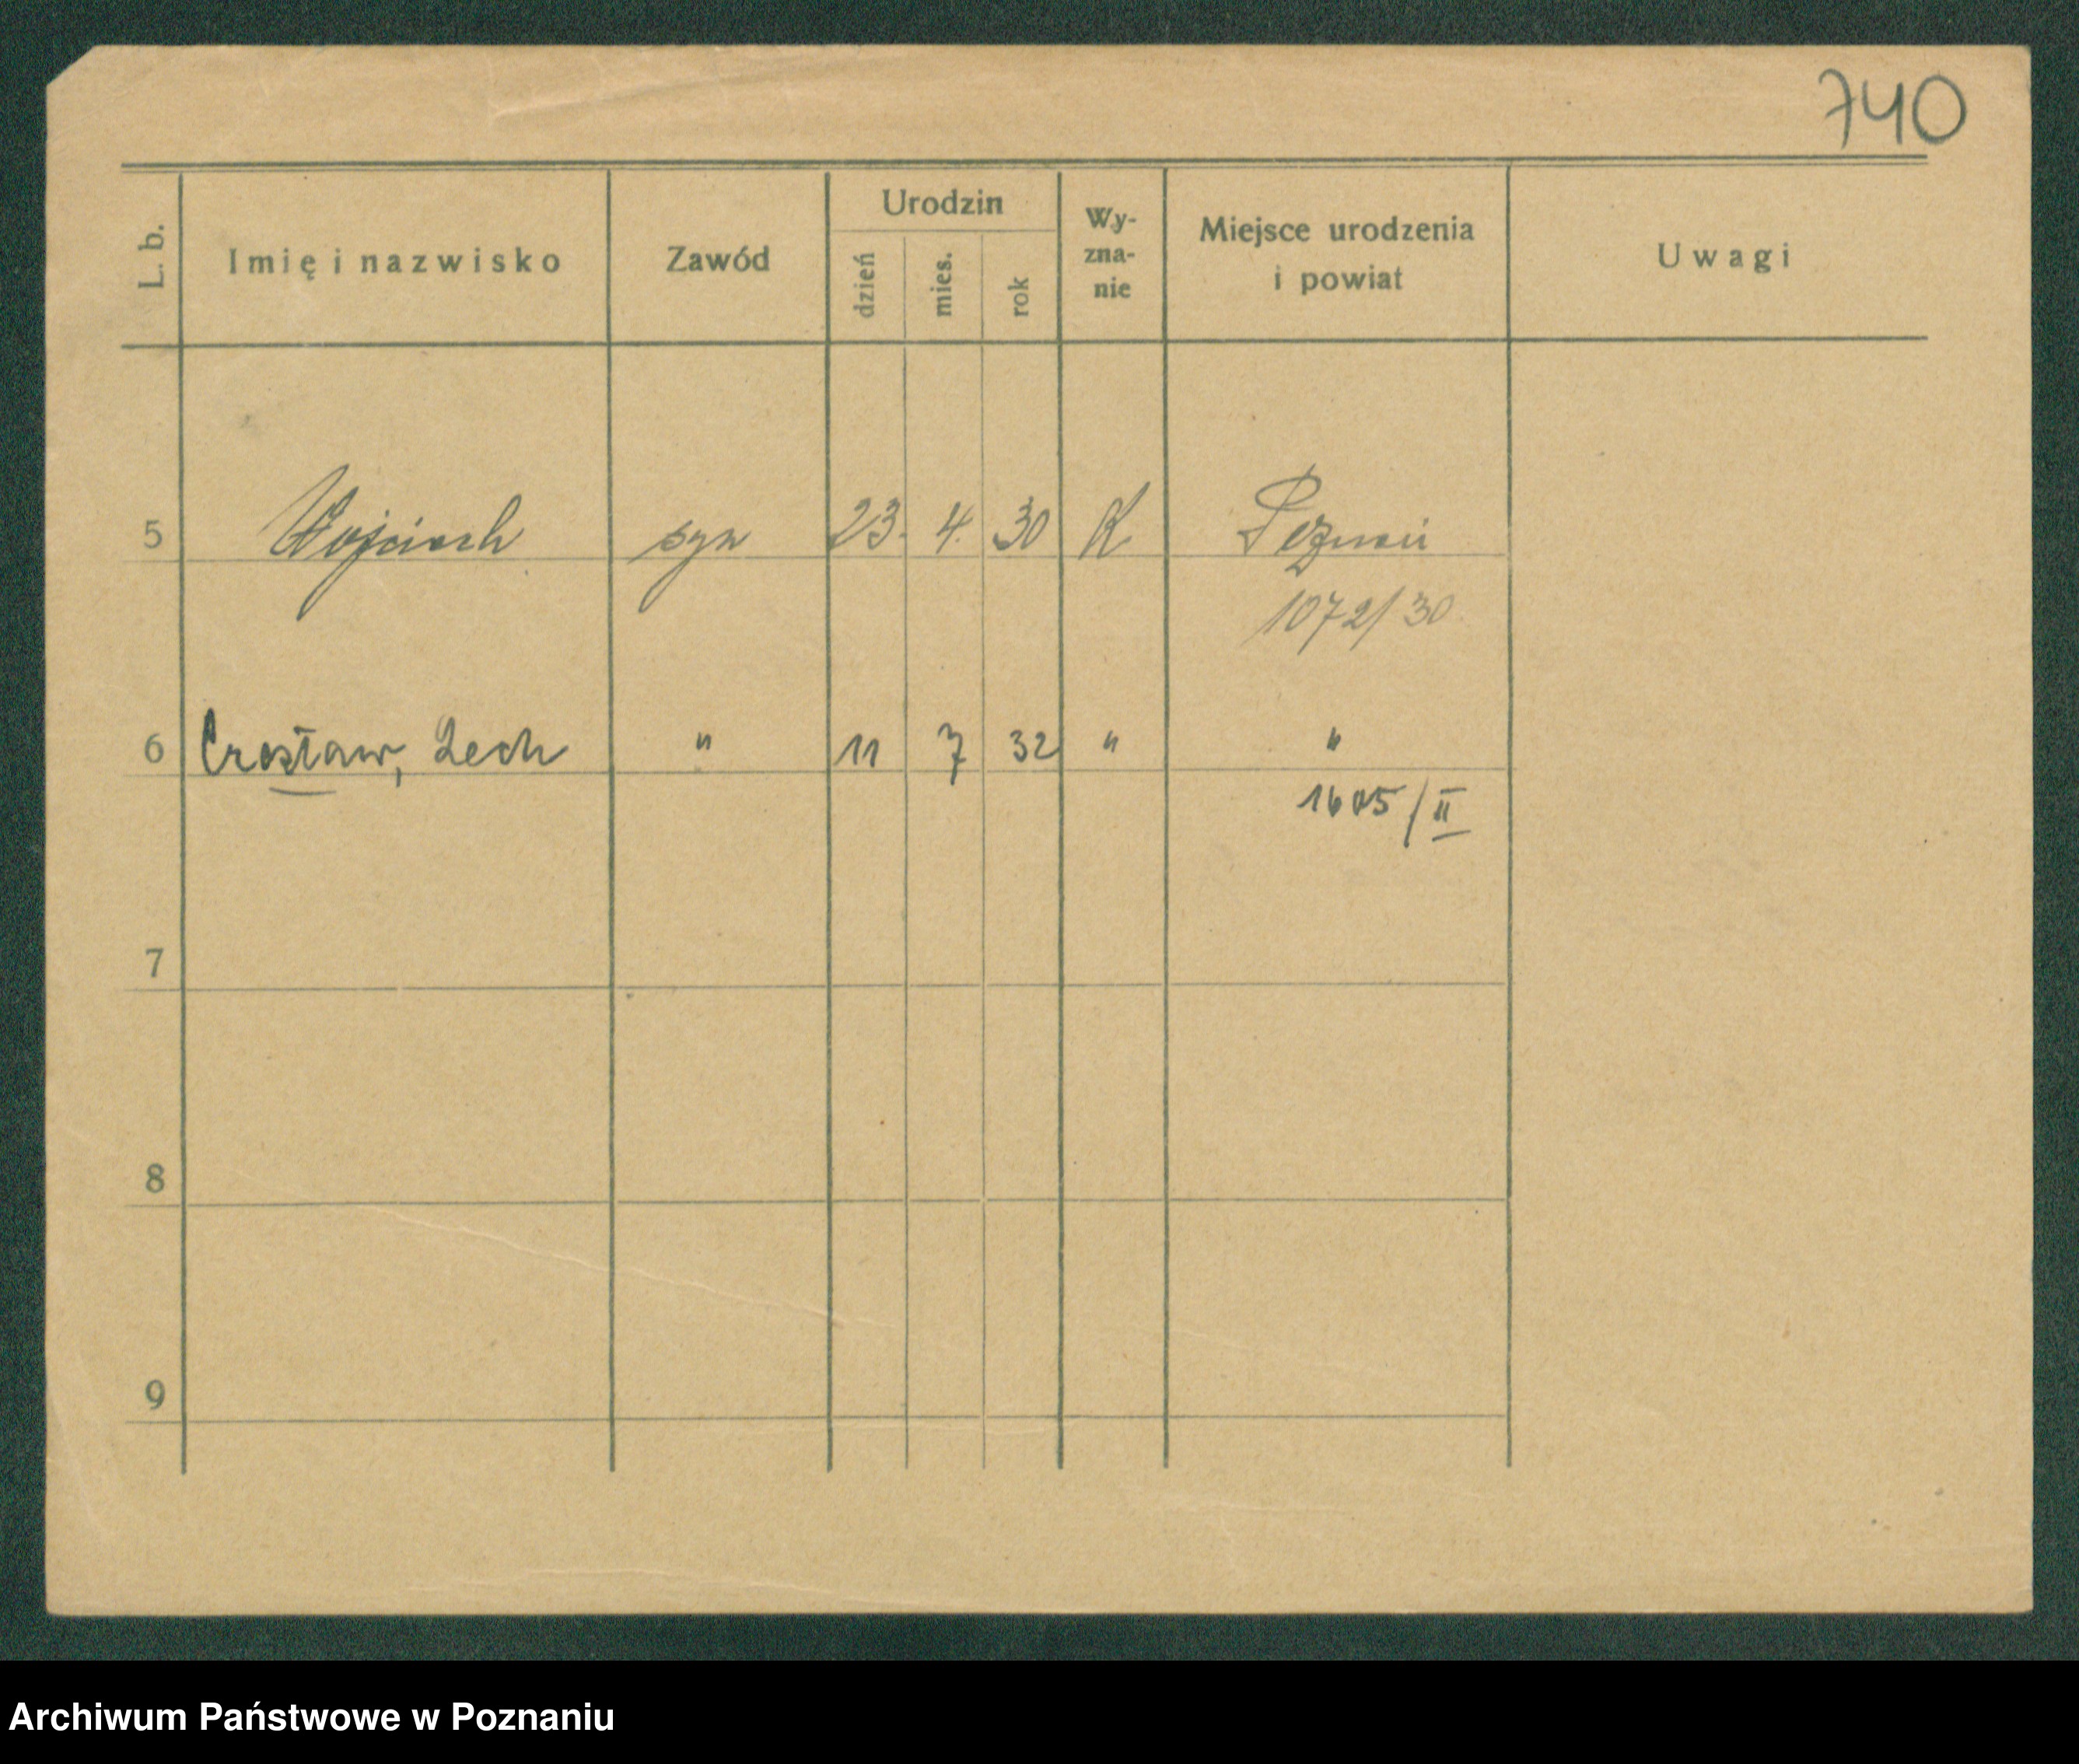 740
L. b.
Imię i nazwisko
Zawód
Urodzin
dzień
mies.
rok
Wy-
zna-
nie
Miejsce urodzenia
i powiat
Uwagi
5 Wojciech syn 23. 4. 30 K Poznań
1072/30.
6 Czesław, Lech " 11 7 32 " "
1605/II
7
8
9
Archiwum Państwowe w Poznaniu